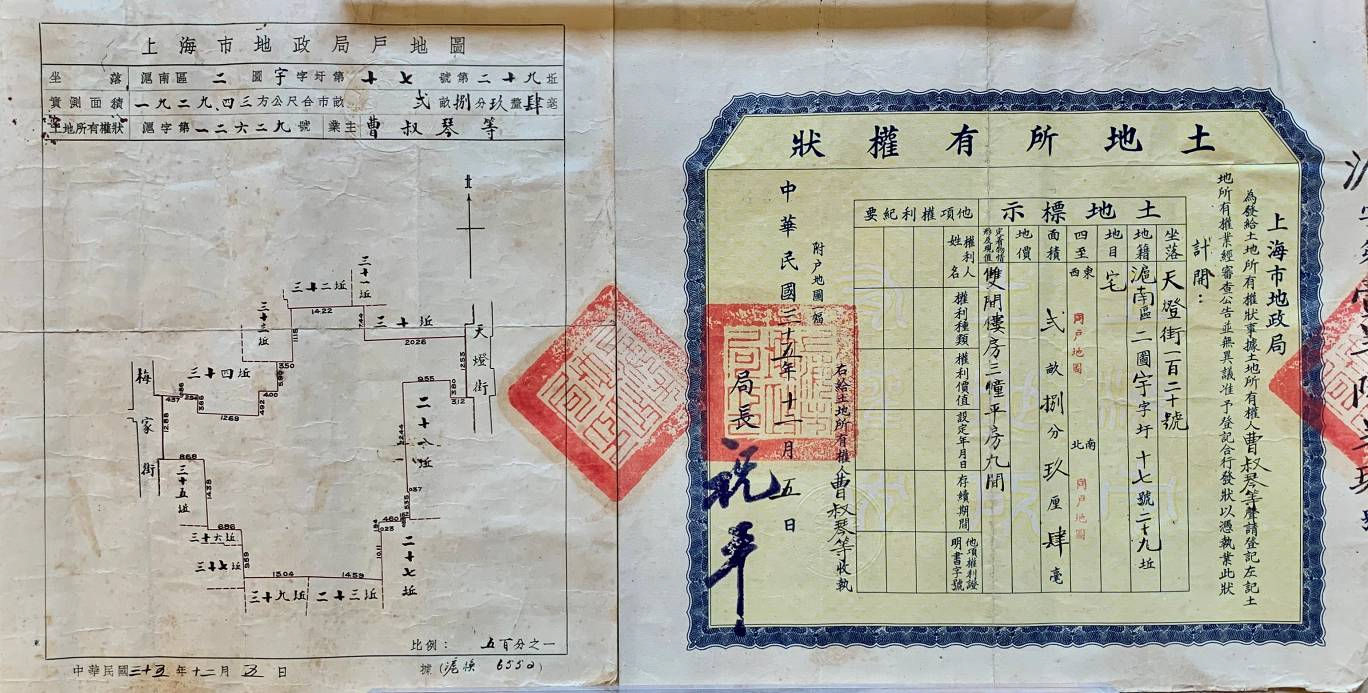 上海市地政局戶地圖
坐落 滬南區 二 圖 宇 字圩第 十七 號第二十九坵
實測面積 一九二九.四三方公尺合市畝 弍畝捌分玖釐肆毫
土地所有權狀 滬字第一二六二九號 業主 曹叔琴等
北
三十一坵
三十二坵
14.22
7.44
三十坵
20.26
12.53
天燈街
三十三坵
11.15
3.50
三十四坵
4.00
4.92
12.69
3.66
4.37
梅家街
12.88
9.55
3.80
3.12
二十八坵
8.68
三十五坵
14.38
6.86
三十六坵
三十七坵
9.59
15.04
14.59
三十九坵
二十三坵
二十七坵
10.11
4.60
0.23
5.35
0.37
比例： 五百分之一
中華民國三十五年十二月五日
土地所有權狀
上海市地政局
為發給土地所有權狀事據土地所有權人曹叔琴等聲請登記左記土
地所有權業經審查公告並無異議准予登記合行發狀以憑執業此狀
計開：
土地標示
坐落 天燈街一百二十號
地籍 滬南區二圖宇字圩十七號二十九坵
地目 宅
四至 東西 同戶地圖 南北 同戶地圖
面積 弍畝捌分玖厘肆毫
地價
定着物情形及現值 雙間樓房三幢平房九間
他項權利紀要
權利人姓名
權利種類
權利價值
設定年月日
存續期間
他項權利證明書字號
附戶地圖一幅
右給土地所有權人曹叔琴等收執
中華民國三十五年十二月五日
局長 祝平